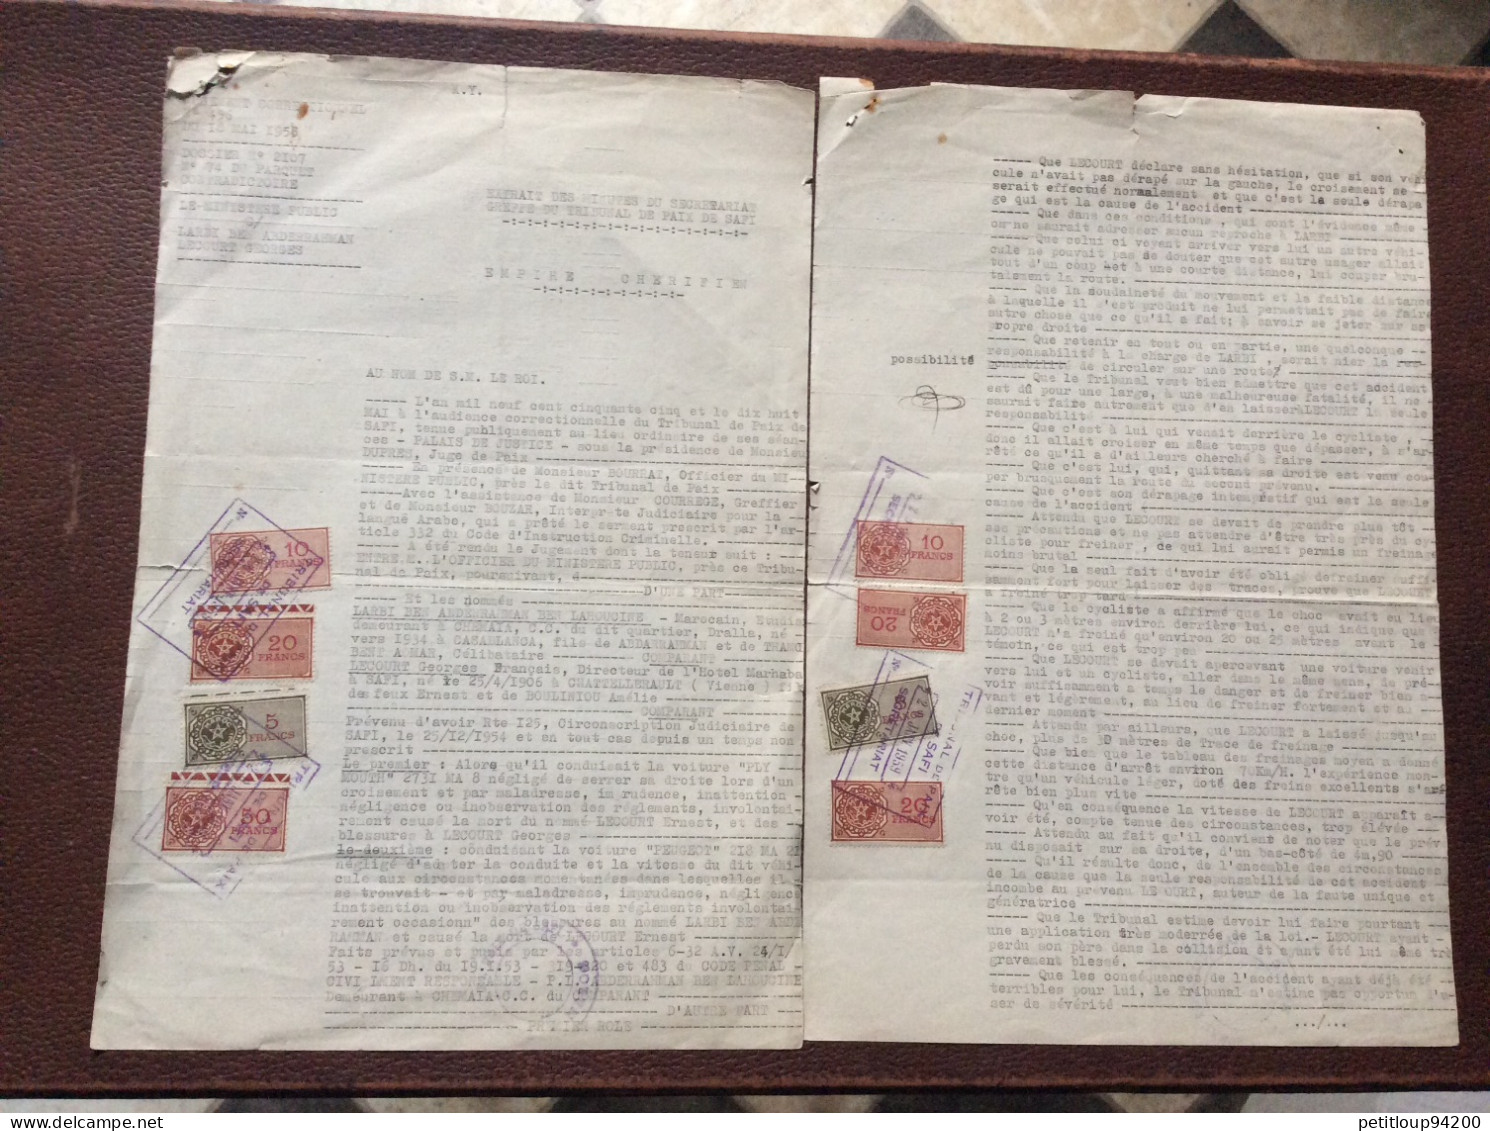 A.Y.
CORRECTIONNEL
DU 18 MAI 1955
DOSSIER N° 2107
N° 74 DU PARQUET
CONTRADICTOIRE
LE MINISTERE PUBLIC
LARBI BEN ABDERRAHMAN
LECOURT GEORGES
EXTRAIT DES MINUTES DU SECRETARIAT
GREFFE DU TRIBUNAL DE PAIX DE SAFI
EMPIRE CHERIFIEN
AU NOM DE S.M. LE ROI.
----- L'an mil neuf cent cinquante cinq et le dix huit
MAI à l'audience correctionnelle du Tribunal de Paix de
SAFI, tenue publiquement au lieu ordinaire de ses séan-
ces - PALAIS DE JUSTICE - sous la présidence de Monsieu
DUPRES, Juge de Paix
----- En présence de Monsieur BOURRAT, Officier du MI-
NISTERE PUBLIC, près le dit Tribunal de Paix
-----Avec l'assistance de Monsieur COURREGE, Greffier
et de Monsieur BOUZAR, Interprète Judiciaire pour la
langue Arabe, qui a prêté le serment prescrit par l'ar-
ticle 332 du Code d'Instruction Criminelle.
----- A été rendu le Jugement dont la teneur suit :
ENTRE M. L'OFFICIER DU MINISTERE PUBLIC, près ce Tribu-
nal de Paix, poursuivant, d
D'UNE PART
----- Et les nommés
LARBI BEN ABDERRAHMAN BEN LAHOUCINE - Marocain, Etudia
demeurant à CHEMAIA, C.C. du dit quartier, Dralla, né
vers 1934 à CASABLANCA, fils de ABDARRAHMAN et de THAMO
BENT AOMAR, Célibataire COMPARANT
LECOURT Georges Français, Directeur de l'Hotel Marhaba
à SAFI, né le 25/4/1906 à CHATTELLERAULT ( Vienne ) fil
des feux Ernest et de BOULINIOU Amélie
COMPARANT
Prévenu d'avoir Rte 125, Circonscription Judiciaire de
SAFI, le 25/12/1954 et en tout cas depuis un temps non
prescrit
Le premier : Alors qu'il conduisait la voiture "PLY
MOUTH" 2731 MA 8 négligé de serrer sa droite lors d'un
croisement et par maladresse, imprudence, inattention
négligence ou inobservation des réglements, involontai-
rement causé la mort du nommé LECOURT Ernest, et des
blessures à LECOURT Georges
le deuxième : conduisant la voiture "PEUGEOT" 218 MA 21
négligé d'adapter la conduite et la vitesse du dit véhi-
cule aux circonstances momentanées dans lesquelles il
se trouvait - et par maladresse, imprudence, négligence
inattention ou inobservation des réglements involontai
rement occasionn" des blessures au nommé LARBI BEN ABDE
RAHMAN et causé la mort de LECOURT Ernest
Faits prévus et punis par les articles 6-32 A.V. 24/1
53 - 16 Dh. du 19.1.53 - 319-320 et 483 du CODE PENAL -
CIVILEMENT RESPONSABLE - P.I. ABDERRAHMAN BEN LAHOUCINE
Demeurant à CHEMAIA C.C. du COMPARANT
D'AUTRE PART
PREMIER ROLE
10
FRANCS
20
FRANCS
5
FRANCS
50
FRANCS
----- Que LECOURT déclare sans hésitation, que si son véhi
cule n'avait pas dérapé sur la gauche, le croisement se
serait effectué normalement et que c'est la seule dérapa
ge qui est la cause de l'accident
----- Que dans ces conditions, qui sont l'évidence même
on ne saurait adresser aucun reproche à LARBI
----- Que celui ci voyant arriver vers lui un autre véhi-
cule ne pouvait pas se douter que cet autre usager allait
tout d'un coup et à une courte distance, lui couper bru-
talement la route.
----- Que la soudaineté du mouvement et la faible distance
à laquelle il s'est produit ne lui permettait pas de faire
autre chose que ce qu'il a fait; à savoir se jeter sur sa
propre droite
----- Que retenir en tout ou en partie, une quelconque
responsabilité à la charge de LARBI , serait nier la res-
ponsabilité de circuler sur une route/
possibilité
----- Que le Tribunal veut bien admettre que cet accident
est dû pour une large, à une malheureuse fatalité, il ne
saurait faire autrement que d'en laisser à LECOURT la seule
responsabilité
----- Que c'est à lui qui venait derrière le cycliste ,
donc il allait croiser en même temps que dépasser, à s'ar-
rêté ce qu'il a d'ailleurs cherché à faire
----- Que c'est lui, qui, quittant sa droite est venu cou-
per brusquement la route du second prévenu.
----- Que c'est son dérapage intempestif qui est la seule
cause de l'accident
----- Attendu que LECOURT se devait de prendre plus tôt
ses précautions et ne pas attendre d'être très près du cy-
cliste pour freiner , ce qui lui aurait permis un freinage
moins brutal
----- Que la seul fait d'avoir été obligé de freiner suffi-
samment fort pour laisser des traces, prouve que LECOURT
a freiné trop tard
----- Que le cycliste a affirmé que le choc avait eu lieu
à 2 ou 3 mètres environ derrière lui, ce qui indique que
LECOURT n'a freiné qu'environ 20 ou 25 mètres avant le
témoin, ce qui est trop peu
----- Que LECOURT se devait apercevant une voiture venir
vers lui et un cycliste, aller dans le même sens, de pré-
voir suffisamment a temps le danger et de freiner bien
avant et légèrement, au lieu de freiner fortement et au
dernier moment
----- Attendu par ailleurs, que LECOURT à laissé jusqu'au
choc, plus de 30 mètres de Trace de freinage
----- Que bien que le tableau des freinages moyen a donné
cette distance d'arrêt environ 70Km/H. l'expérience mon-
tre qu'un véhicule léger, doté des freins excellents s'ar
rête bien plus vite
----- Qu'en conséquence la vitesse de LECOURT apparaît a-
voir été, compte tenue des circonstances, trop élevée
----- Attendu au fait qu'il convient de noter que le prév
au disposait sur sa droite, d'un bas-côté de 4m,90
----- Qu'il résulte donc, de l'ensemble des circonstances
de la cause que la seule responsabilité de cet accident
incombe au prévenu LECOURT, auteur de la faute unique et
génératrice
----- Que le Tribunal estime devoir lui faire pourtant
une application très moderrée de la loi.- LECOURT ayant
perdu son père dans la collision et ayant été lui même tr
gravement blessé.
----- Que les conséquences de l'accident ayant déjà été
terribles pour lui, le Tribunal n'estime pas opportun d'u
ser de sévérité
.../...
10
FRANCS
20
FRANCS
20
FRANCS
delcampe.net
petitloup94200